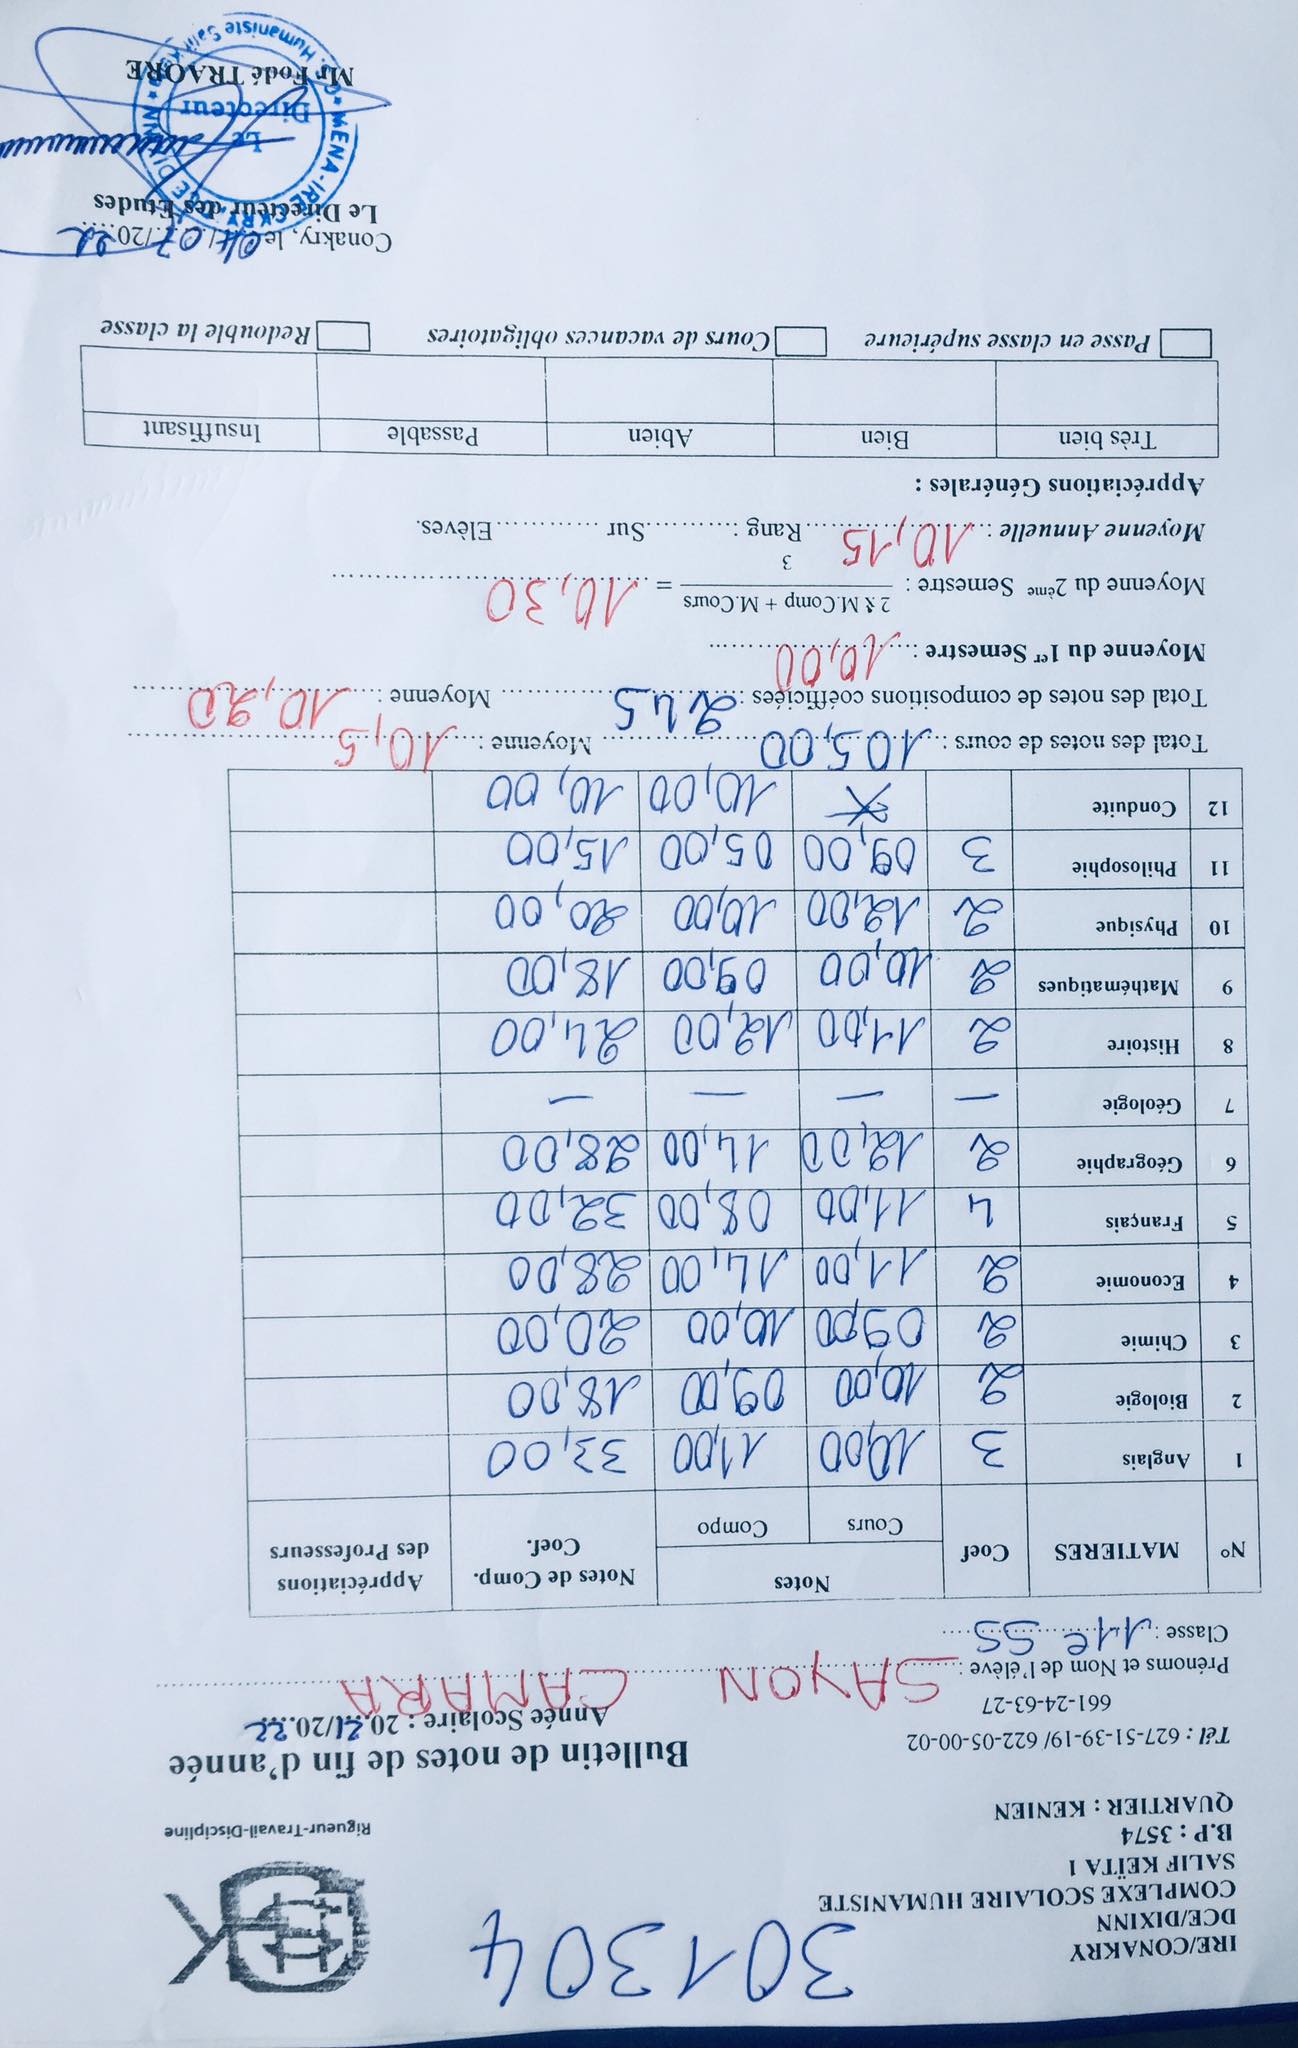 301304
IRE/CONAKRY
DCE/DIXINN
COMPLEXE SCOLAIRE HUMANISTE
SALIF KEÏTA 1
B.P : 3574
QUARTIER : KENIEN
Rigueur-Travail-Discipline
Tél : 627-51-39-19/ 622-05-00-02
661-24-63-27
Bulletin de notes de fin d'année
Année Scolaire : 20 21/20 22
Prénoms et Nom de l'élève : SAYON CAMARA
Classe : 11e SS
N° MATIERES Coef Notes Notes de Comp. Coef. Appréciations des Professeurs
Cours Compo
1 Anglais 3 10,00 11,00 33,00
2 Biologie 2 10,00 09,00 18,00
3 Chimie 2 09,00 10,00 20,00
4 Economie 2 11,00 14,00 28,00
5 Français 4 11,00 08,00 32,00
6 Géographie 2 12,00 14,00 28,00
7 Géologie — — — —
8 Histoire 2 11,00 12,00 24,00
9 Mathématiques 2 10,00 09,00 18,00
10 Physique 2 12,00 10,00 20,00
11 Philosophie 3 09,00 05,00 15,00
12 Conduite 10,00 10,00
Total des notes de cours : 105,00 Moyenne : 10,5
Total des notes de compositions coéfficiées : 245 Moyenne : 10,20
Moyenne du 1er Semestre : 10,00
Moyenne du 2ème Semestre : 2 x M.Comp + M.Cours / 3 = 10,30
Moyenne Annuelle : 10,15 Rang : Sur Elèves.
Appréciations Générales :
Très bien Bien Abien Passable Insuffisant
Passe en classe supérieure Cours de vacances obligatoires Redouble la classe
Conakry, le 04/07/20 22
Le Directeur des Etudes
Le
Directeur
Mr Fodé TRAORE